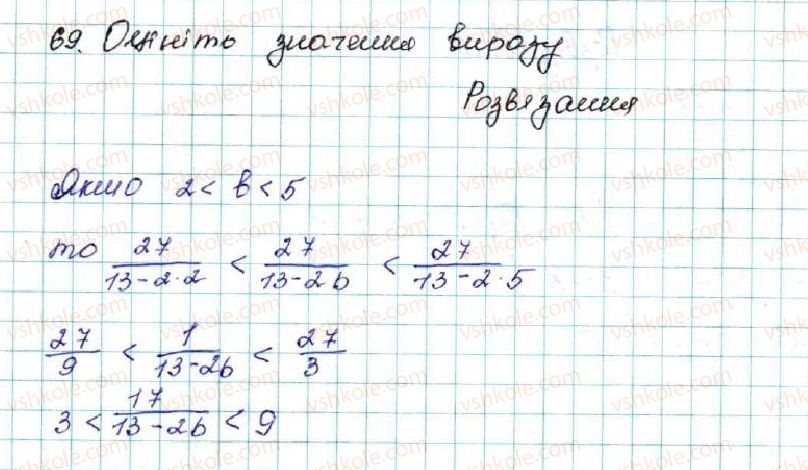 69. Оцініть значення виразу
Розвязання
Якшо 2 < b < 5
то 27/(13-2·2) < 27/(13-2b) < 27/(13-2·5)
27/9 < 1/(13-2b) < 27/3
3 < 17/(13-2b) < 9